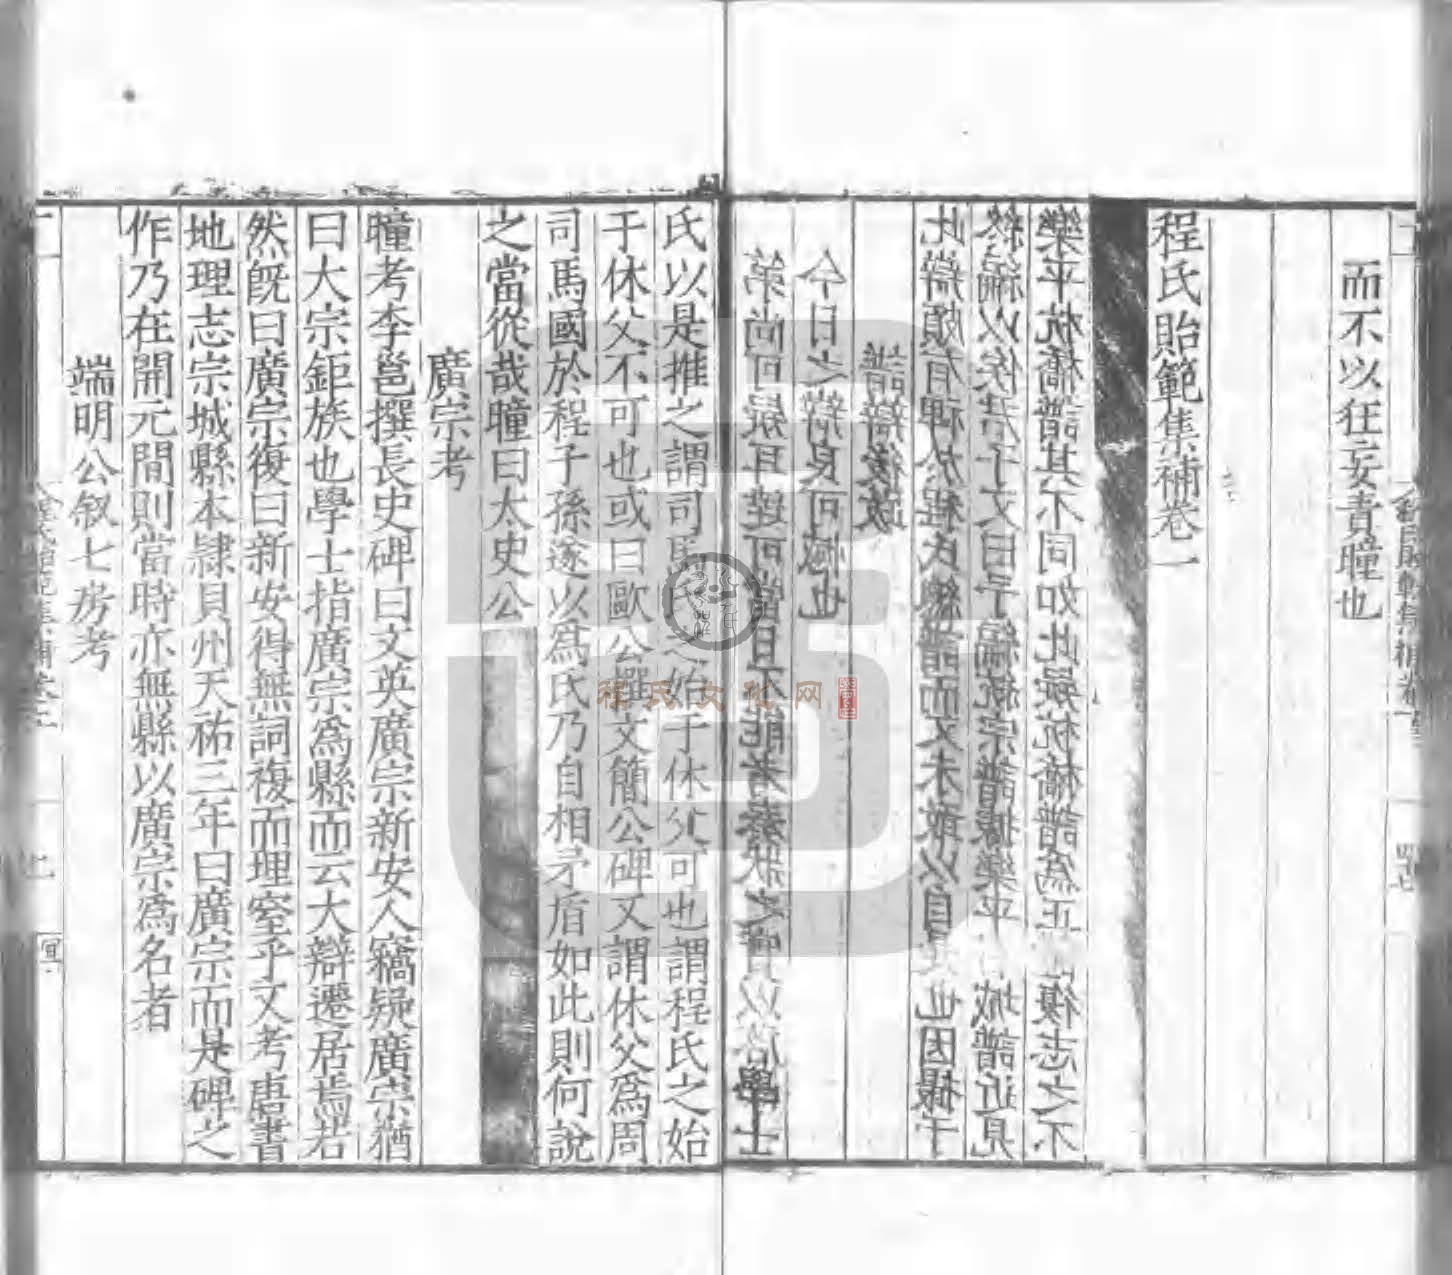 而不以狂妄責曈也
程氏貽範集補卷一
第尚可疑耳 可當日不能考奏狀之實以 學士
今日之辯良可憾也
譜辯後跋
此辯頗有裨於程氏總譜而又未敢以自 也因掇于
終編以俟君子又曰予編統宗譜據樂平 城譜近見
樂平杭橋譜其不同如此疑杭橋譜爲正 復志之不
氏以是推之謂司馬氏之始于休父可也謂程氏之始
于休父不可也或曰歐公撰文簡公碑又謂休父爲周
司馬國於程子孫遂以爲氏乃自相矛盾如此則何說
之當從哉曈曰太史公
廣宗考
曈考李邕撰長史碑曰文英廣宗新安人竊疑廣宗猶
曰大宗鉅族也學士指廣宗爲縣而云大辯遷居焉若
然旣曰廣宗復曰新安得無詞複而理窒乎又考唐書
地理志宗城縣本隸貝州天祐三年曰廣宗而是碑之
作乃在開元間則當時亦無縣以廣宗爲名者
端明公叙七房考